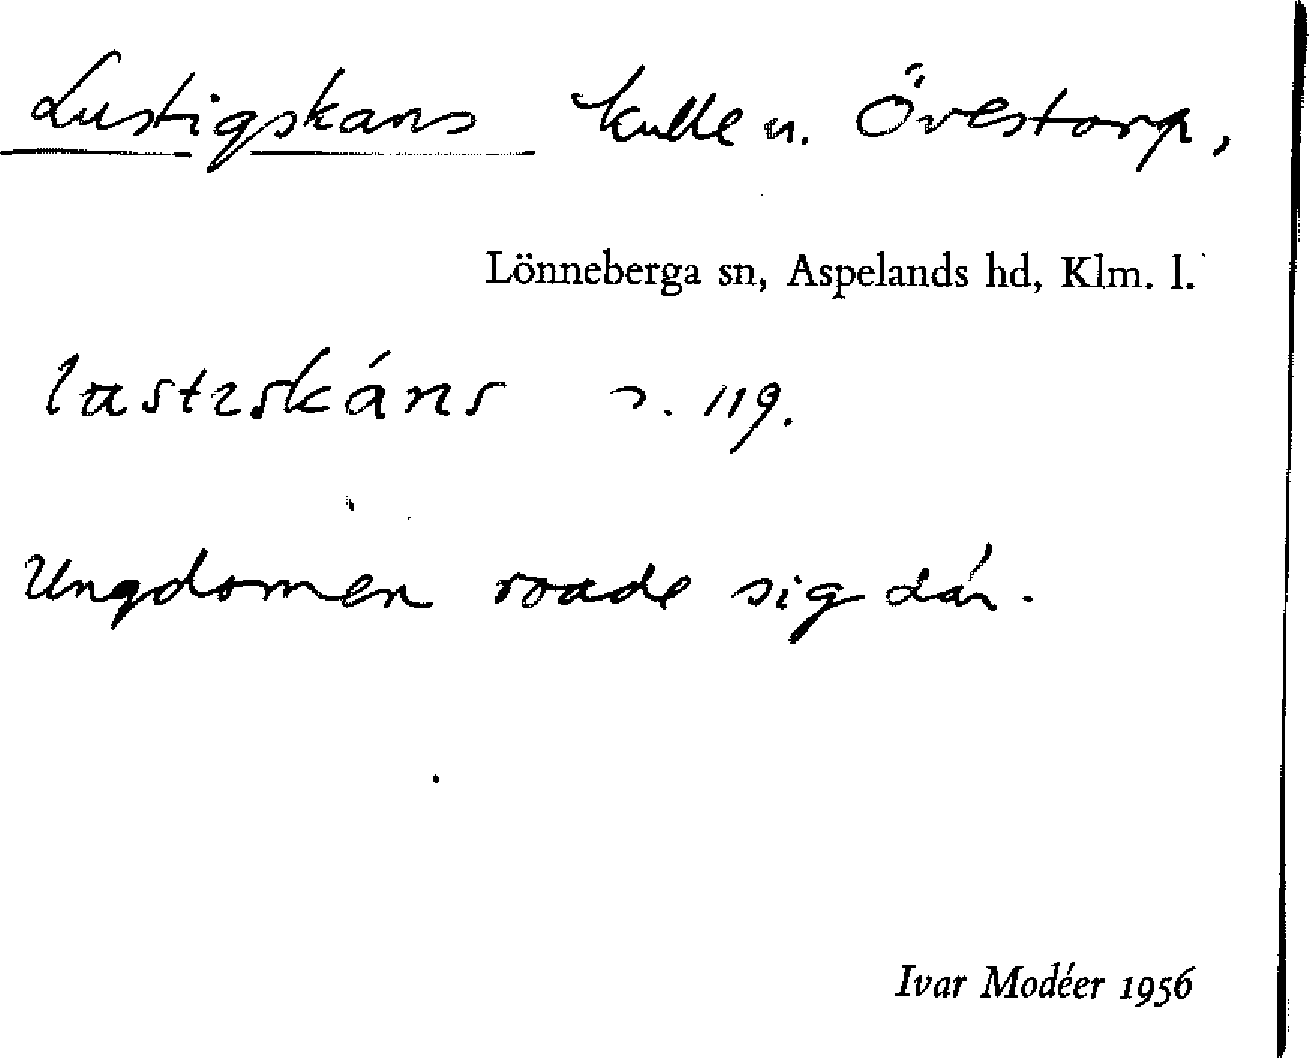 Lustigskans kulle u. Övestorp,
Lönneberga sn, Aspelands hd, Klm. l.
119.
Ungdomen roade sig där.
Ivar Modéer 1956